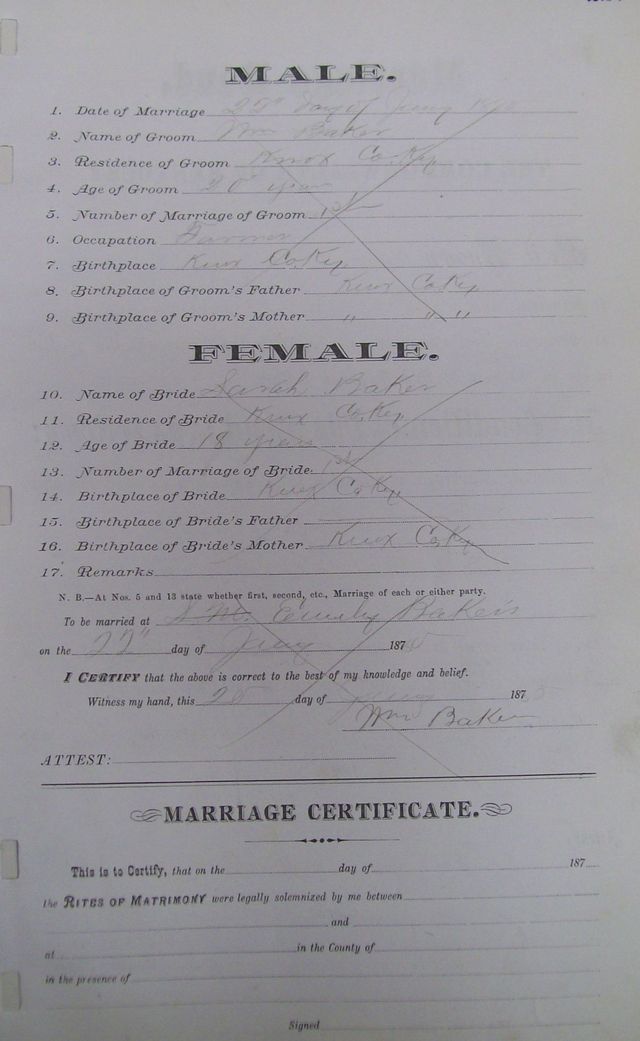 MALE.
1. Date of Marriage 22" day of
2. Name of Groom Wm Baker
3. Residence of Groom Knox Co. Ky
4. Age of Groom 20 years
5. Number of Marriage of Groom 1st
6. Occupation Farmer
7. Birthplace Knox Co. Ky
8. Birthplace of Groom's Father Knox Co Ky
9. Birthplace of Groom's Mother " " "
FEMALE.
10. Name of Bride Sarah Baker
11. Residence of Bride Knox Co. Ky
12. Age of Bride 18 years
13. Number of Marriage of Bride 1st
14. Birthplace of Bride Knox Co Ky
15. Birthplace of Bride's Father
16. Birthplace of Bride's Mother Knox Co. Ky
17. Remarks
N. B.—At Nos. 5 and 13 state whether first, second, etc., Marriage of each or either party.
To be married at Emily Baker's
on the 22" day of 187
I CERTIFY that the above is correct to the best of my knowledge and belief.
Witness my hand, this 20 day of 187
Wm Baker
ATTEST:
MARRIAGE CERTIFICATE.
This is to Certify, that on the day of 187
the RITES OF MATRIMONY were legally solemnized by me between
and
at in the County of
in the presence of
Signed